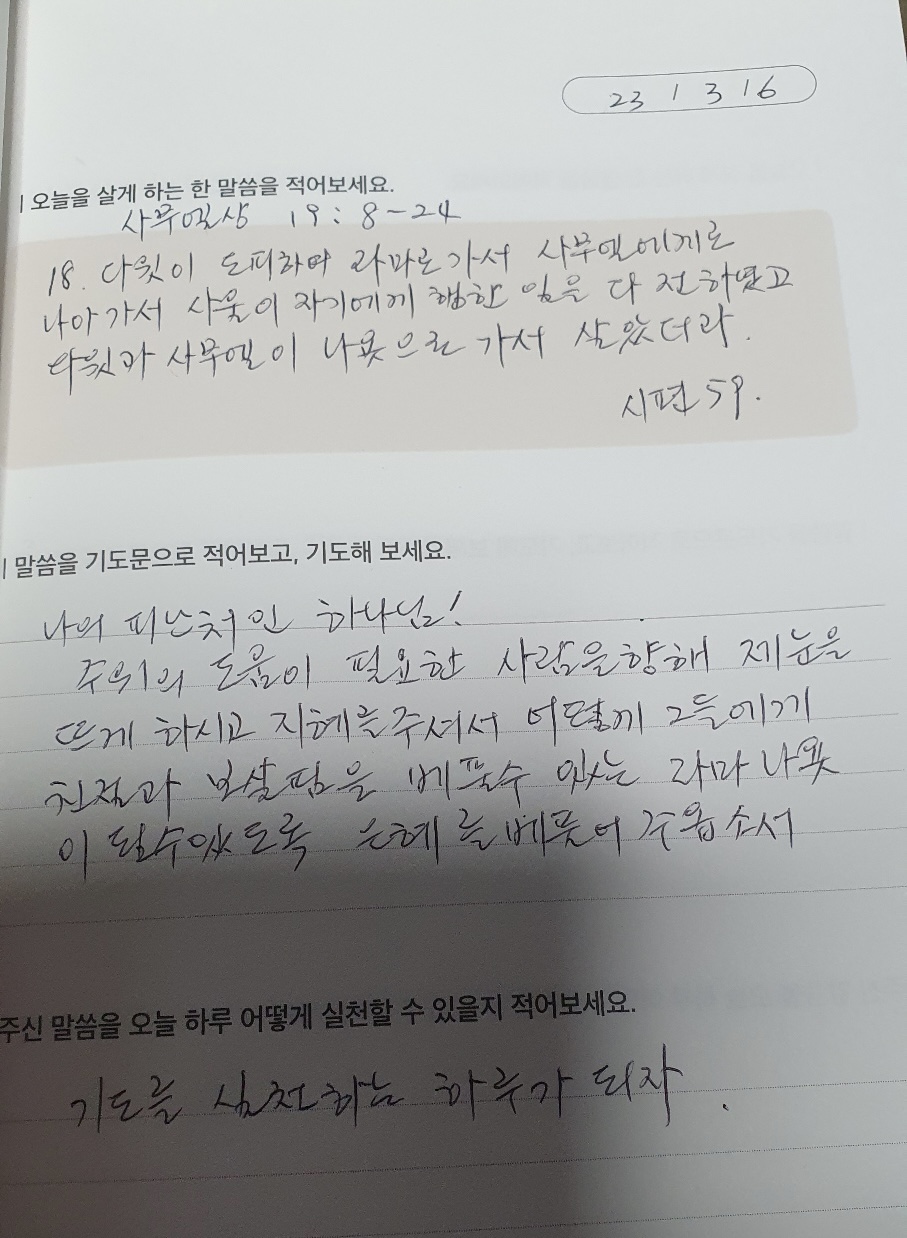 23 / 3 / 16
| 오늘을 살게 하는 한 말씀을 적어보세요.
사무엘상 19:8-24
18. 다윗이 도피하여 라마로 가서 사무엘에게로
나아가서 사울이 자기에게 행한 일을 다 전하였고
다윗과 사무엘이 나욧으로 가서 살았더라.
시편 59.
| 말씀을 기도문으로 적어보고, 기도해 보세요.
나의 피난처인 하나님!
주위의 도움이 필요한 사람을향해 제눈을
뜨게 하시고 지혜를주셔서 어떻게 그들에게
친절과 보살핌을 베풀수 있는 라마 나욧
이 될수있도록 은혜를베풀어 주옵소서
주신 말씀을 오늘 하루 어떻게 실천할 수 있을지 적어보세요.
기도를 실천하는 하루가 되자.